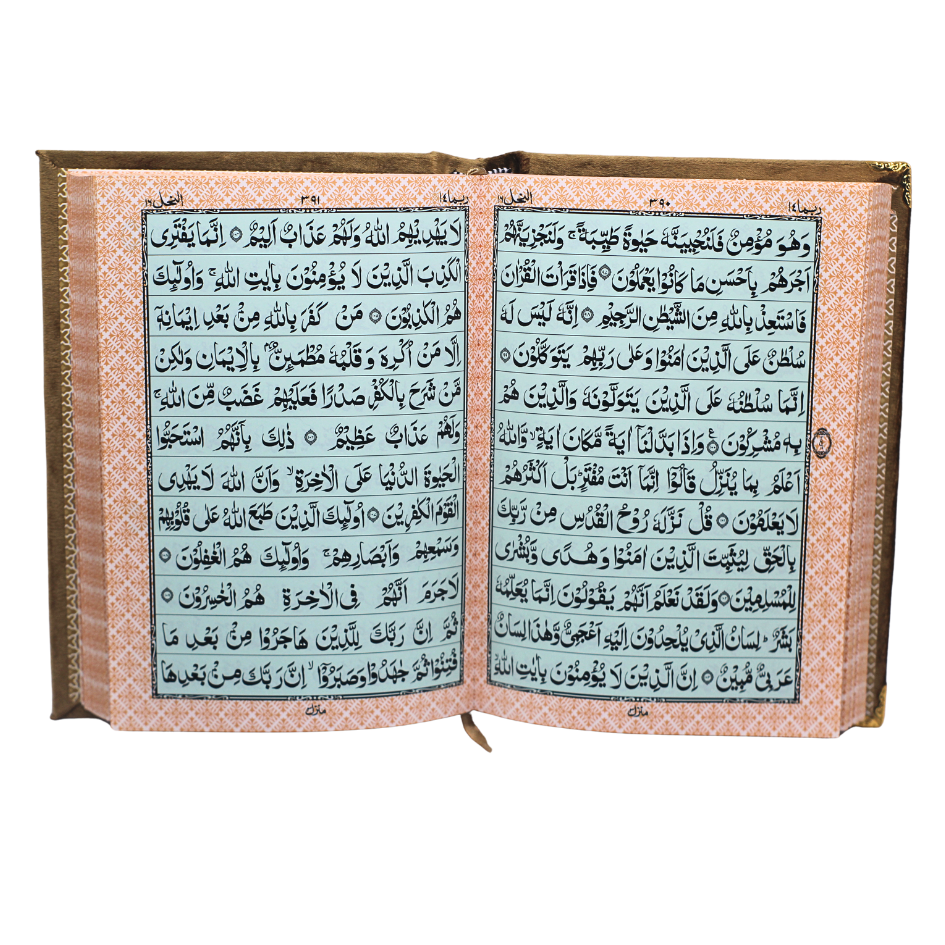 ربما ١٤
٣٩٠
النحل ١٦
وَهُوَ مُؤْمِنٌ فَلَنُحْيِيَنَّهٗ حَيٰوةً طَيِّبَةً ۚ وَلَنَجْزِيَنَّهُمْ
اَجْرَهُمْ بِاَحْسَنِ مَا كَانُوْا يَعْمَلُوْنَ ۝ فَاِذَا قَرَاْتَ الْقُرْاٰنَ
فَاسْتَعِذْ بِاللّٰهِ مِنَ الشَّيْطٰنِ الرَّجِيْمِ ۝ اِنَّهٗ لَيْسَ لَهٗ
سُلْطٰنٌ عَلَى الَّذِيْنَ اٰمَنُوْا وَعَلٰى رَبِّهِمْ يَتَوَكَّلُوْنَ ۝
اِنَّمَا سُلْطٰنُهٗ عَلَى الَّذِيْنَ يَتَوَلَّوْنَهٗ وَالَّذِيْنَ هُمْ
بِهٖ مُشْرِكُوْنَ ۝ وَاِذَا بَدَّلْنَاۤ اٰيَةً مَّكَانَ اٰيَةٍ ۙ وَّاللّٰهُ
اَعْلَمُ بِمَا يُنَزِّلُ قَالُوْۤا اِنَّمَاۤ اَنْتَ مُفْتَرٍ ؕ بَلْ اَكْثَرُهُمْ
لَا يَعْلَمُوْنَ ۝ قُلْ نَزَّلَهٗ رُوْحُ الْقُدُسِ مِنْ رَّبِّكَ
بِالْحَقِّ لِيُثَبِّتَ الَّذِيْنَ اٰمَنُوْا وَهُدًى وَّبُشْرٰى
لِلْمُسْلِمِيْنَ ۝ وَلَقَدْ نَعْلَمُ اَنَّهُمْ يَقُوْلُوْنَ اِنَّمَا يُعَلِّمُهٗ
بَشَرٌ ؕ لِسَانُ الَّذِيْ يُلْحِدُوْنَ اِلَيْهِ اَعْجَمِيٌّ وَّهٰذَا لِسَانٌ
عَرَبِيٌّ مُّبِيْنٌ ۝ اِنَّ الَّذِيْنَ لَا يُؤْمِنُوْنَ بِاٰيٰتِ اللّٰهِ ۙ
منزل ٣
ربما ١٤
٣٩١
النحل ١٦
لَا يَهْدِيْهِمُ اللّٰهُ وَلَهُمْ عَذَابٌ اَلِيْمٌ ۝ اِنَّمَا يَفْتَرِى
الْكَذِبَ الَّذِيْنَ لَا يُؤْمِنُوْنَ بِاٰيٰتِ اللّٰهِ ۚ وَاُولٰٓئِكَ
هُمُ الْكٰذِبُوْنَ ۝ مَنْ كَفَرَ بِاللّٰهِ مِنْۢ بَعْدِ اِيْمَانِهٖۤ
اِلَّا مَنْ اُكْرِهَ وَ قَلْبُهٗ مُطْمَئِنٌّۢ بِالْاِيْمَانِ وَلٰكِنْ
مَّنْ شَرَحَ بِالْكُفْرِ صَدْرًا فَعَلَيْهِمْ غَضَبٌ مِّنَ اللّٰهِ ۚ
وَلَهُمْ عَذَابٌ عَظِيْمٌ ۝ ذٰلِكَ بِاَنَّهُمُ اسْتَحَبُّوا
الْحَيٰوةَ الدُّنْيَا عَلَى الْاٰخِرَةِ ۙ وَاَنَّ اللّٰهَ لَا يَهْدِى
الْقَوْمَ الْكٰفِرِيْنَ ۝ اُولٰٓئِكَ الَّذِيْنَ طَبَعَ اللّٰهُ عَلٰى قُلُوْبِهِمْ
وَسَمْعِهِمْ وَاَبْصَارِهِمْ ۚ وَاُولٰٓئِكَ هُمُ الْغٰفِلُوْنَ ۝
لَا جَرَمَ اَنَّهُمْ فِى الْاٰخِرَةِ هُمُ الْخٰسِرُوْنَ ۝
ثُمَّ اِنَّ رَبَّكَ لِلَّذِيْنَ هَاجَرُوْا مِنْۢ بَعْدِ مَا
فُتِنُوْا ثُمَّ جٰهَدُوْا وَصَبَرُوْۤا ۙ اِنَّ رَبَّكَ مِنْۢ بَعْدِهَا
منزل ٣